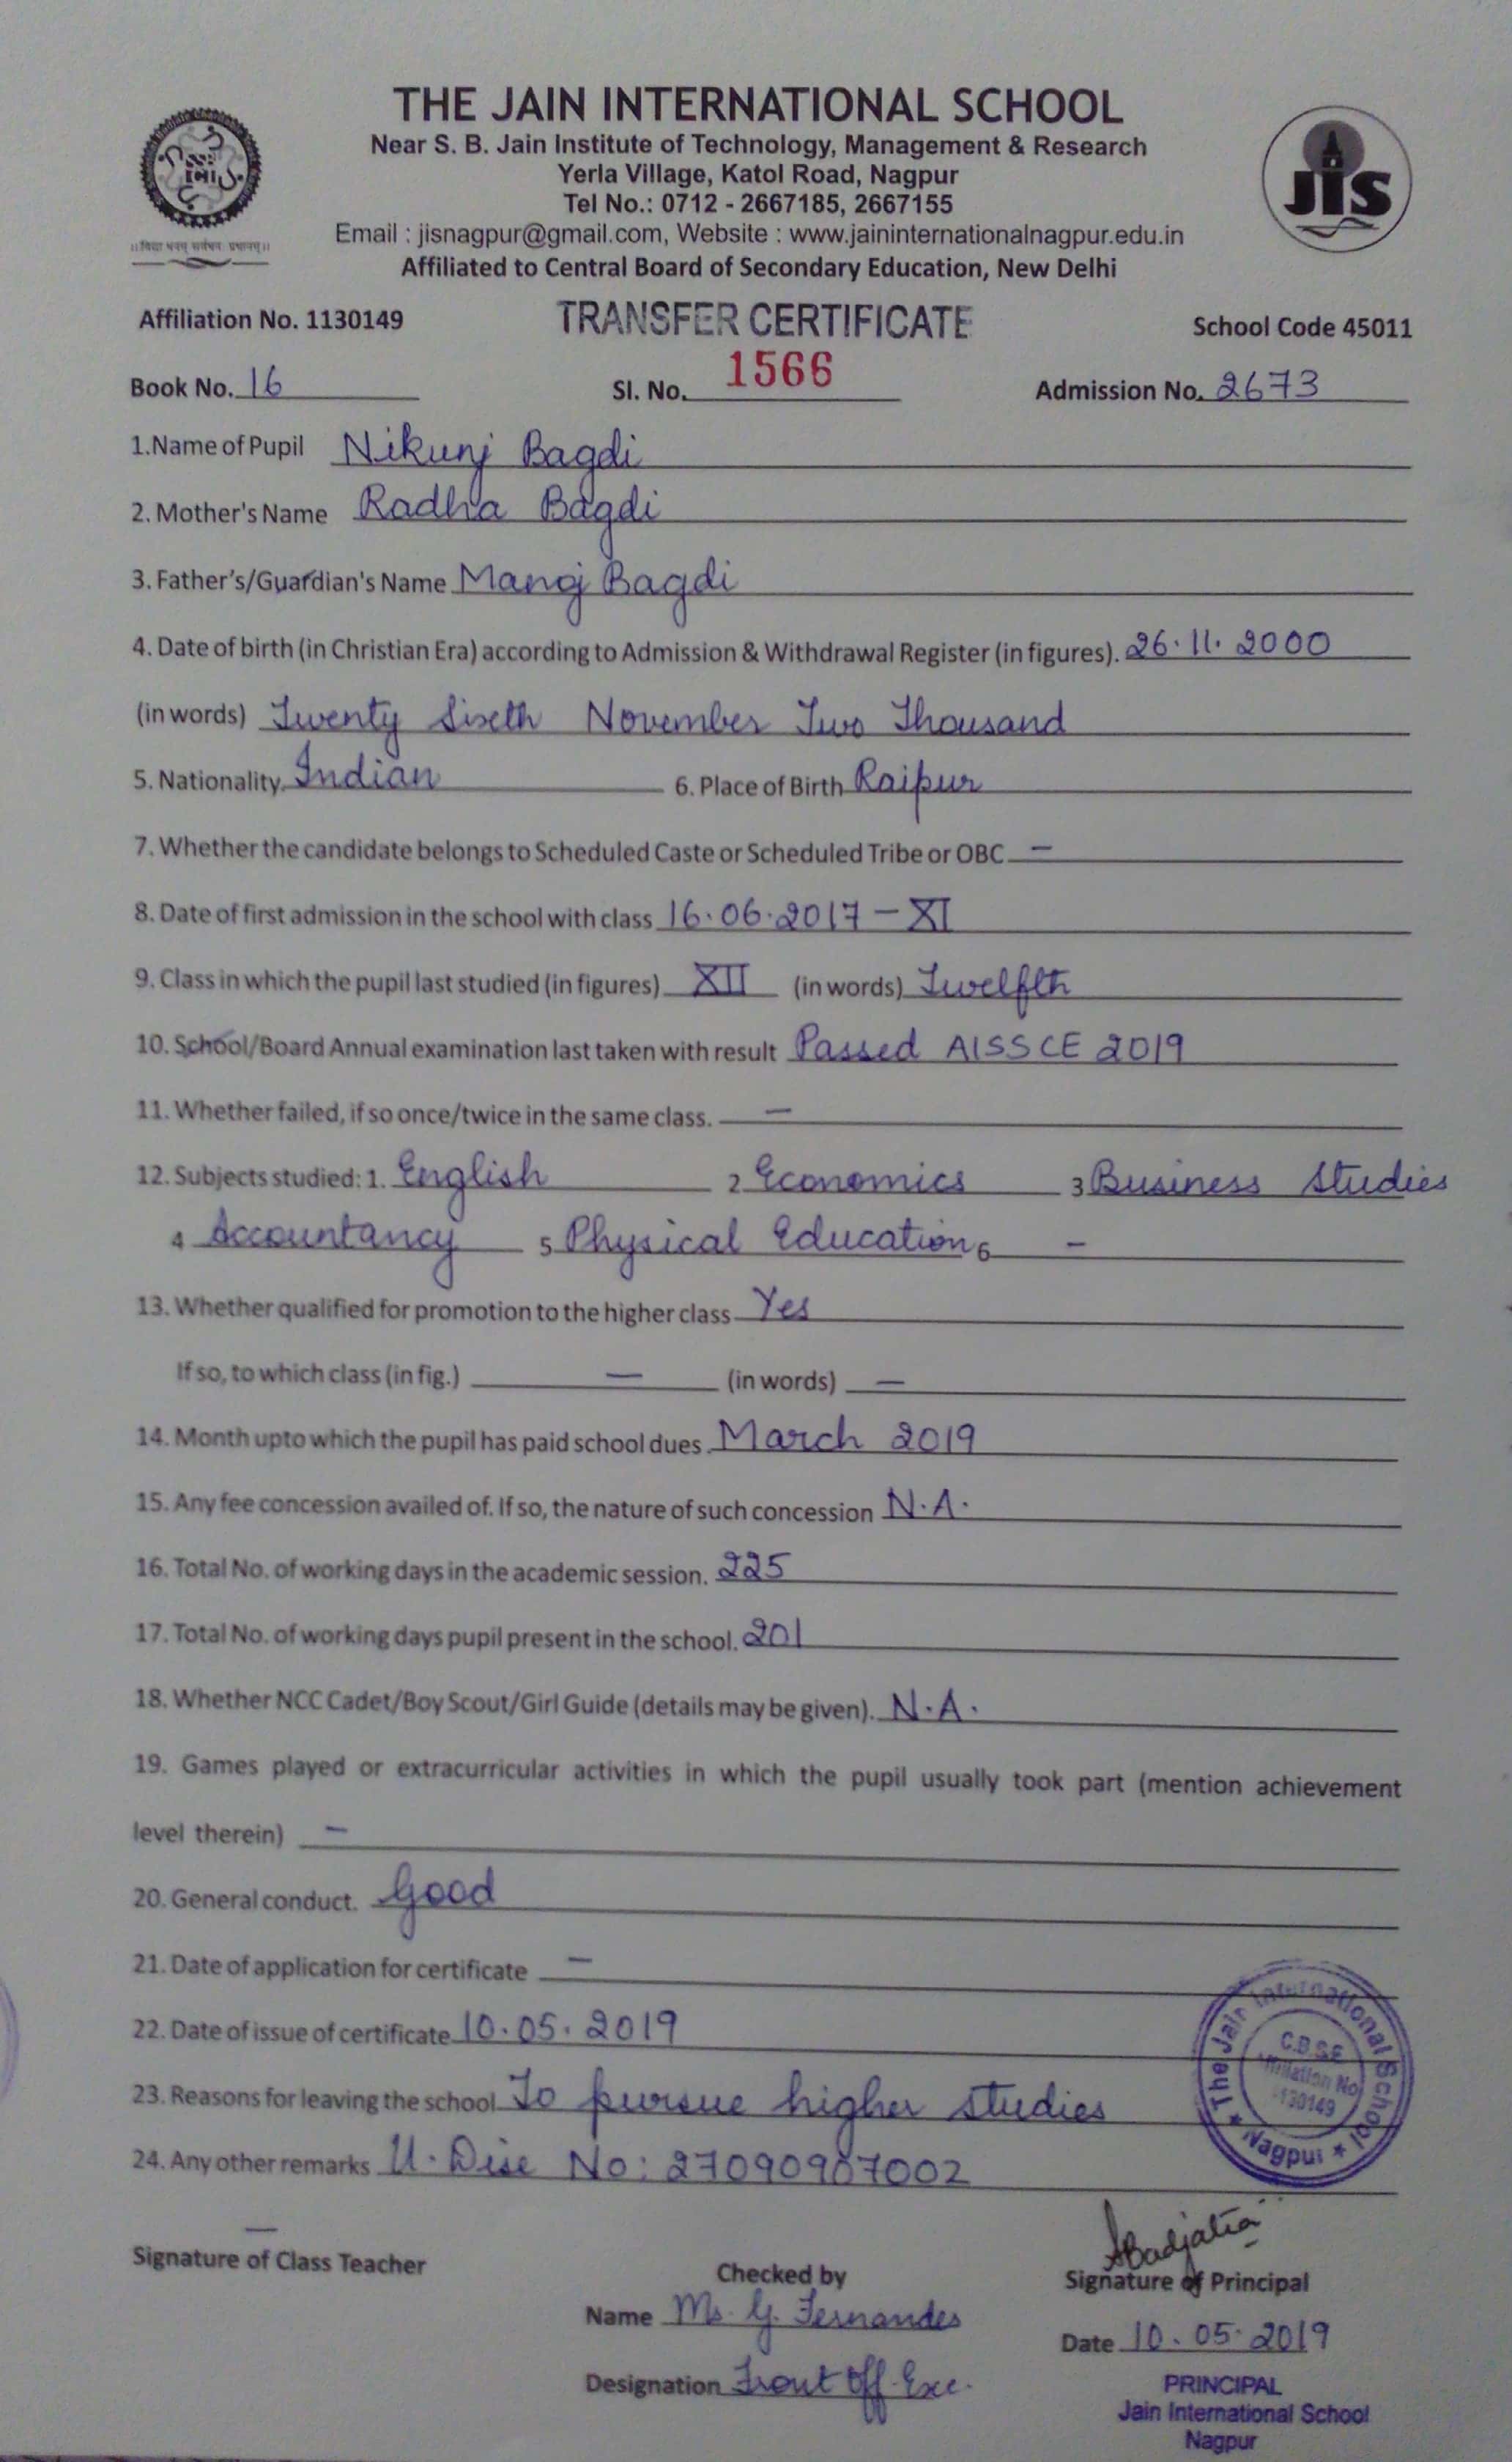 THE JAIN INTERNATIONAL SCHOOL
Near S. B. Jain Institute of Technology, Management & Research
Yerla Village, Katol Road, Nagpur
Tel No.: 0712 - 2667185, 2667155
Email : jisnagpur@gmail.com, Website : www.jaininternationalnagpur.edu.in
Affiliated to Central Board of Secondary Education, New Delhi
JIS
Affiliation No. 1130149 TRANSFER CERTIFICATE School Code 45011
Book No. 16 Sl. No. 1566 Admission No. 2673
1.Name of Pupil Nikunj Bagdi
2. Mother's Name Radha Bagdi
3. Father's/Guardian's Name Manoj Bagdi
4. Date of birth (in Christian Era) according to Admission & Withdrawal Register (in figures). 26.11.2000
(in words) Twenty Sixth November Two Thousand
5. Nationality Indian 6. Place of Birth Raipur
7. Whether the candidate belongs to Scheduled Caste or Scheduled Tribe or OBC —
8. Date of first admission in the school with class 16.06.2017 – XI
9. Class in which the pupil last studied (in figures) XII (in words) Twelfth
10. School/Board Annual examination last taken with result Passed AISSCE 2019
11. Whether failed, if so once/twice in the same class. —
12. Subjects studied: 1. English 2 Economics 3 Business Studies
4 Accountancy 5 Physical Education 6 –
13. Whether qualified for promotion to the higher class Yes
If so, to which class (in fig.) — (in words) —
14. Month upto which the pupil has paid school dues March 2019
15. Any fee concession availed of. If so, the nature of such concession N.A.
16. Total No. of working days in the academic session. 225
17. Total No. of working days pupil present in the school. 201
18. Whether NCC Cadet/Boy Scout/Girl Guide (details may be given). N.A.
19. Games played or extracurricular activities in which the pupil usually took part (mention achievement
level therein) –
20. General conduct. Good
21. Date of application for certificate –
22. Date of issue of certificate 10.05.2019
23. Reasons for leaving the school To pursue higher studies
24. Any other remarks U.Dise No: 27090907002
The Jain International School ★ Nagpur ★
C.B.S.E
No
1130149
—
Signature of Class Teacher
Checked by
Signature of Principal
Name Ms. G. Fernandes
Date 10.05.2019
Designation Front Off. Exe.
PRINCIPAL
Jain International School
Nagpur